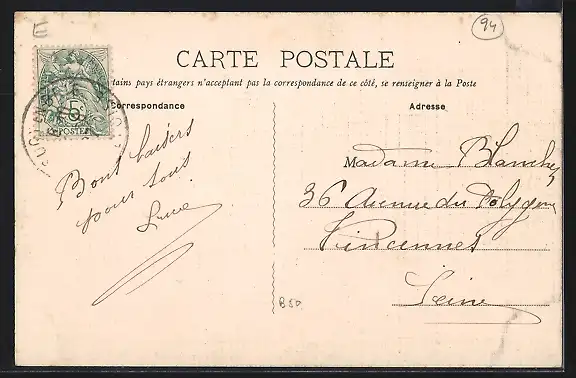 E
94
CARTE POSTALE
tains pays étrangers n'acceptant pas la correspondance de ce côté, se renseigner à la Poste
Correspondance
Adresse
5
POSTES
Bons baisers
pour tous
Madame Blanche
36 Avenue du Polygone
Vincennes
Seine
B50